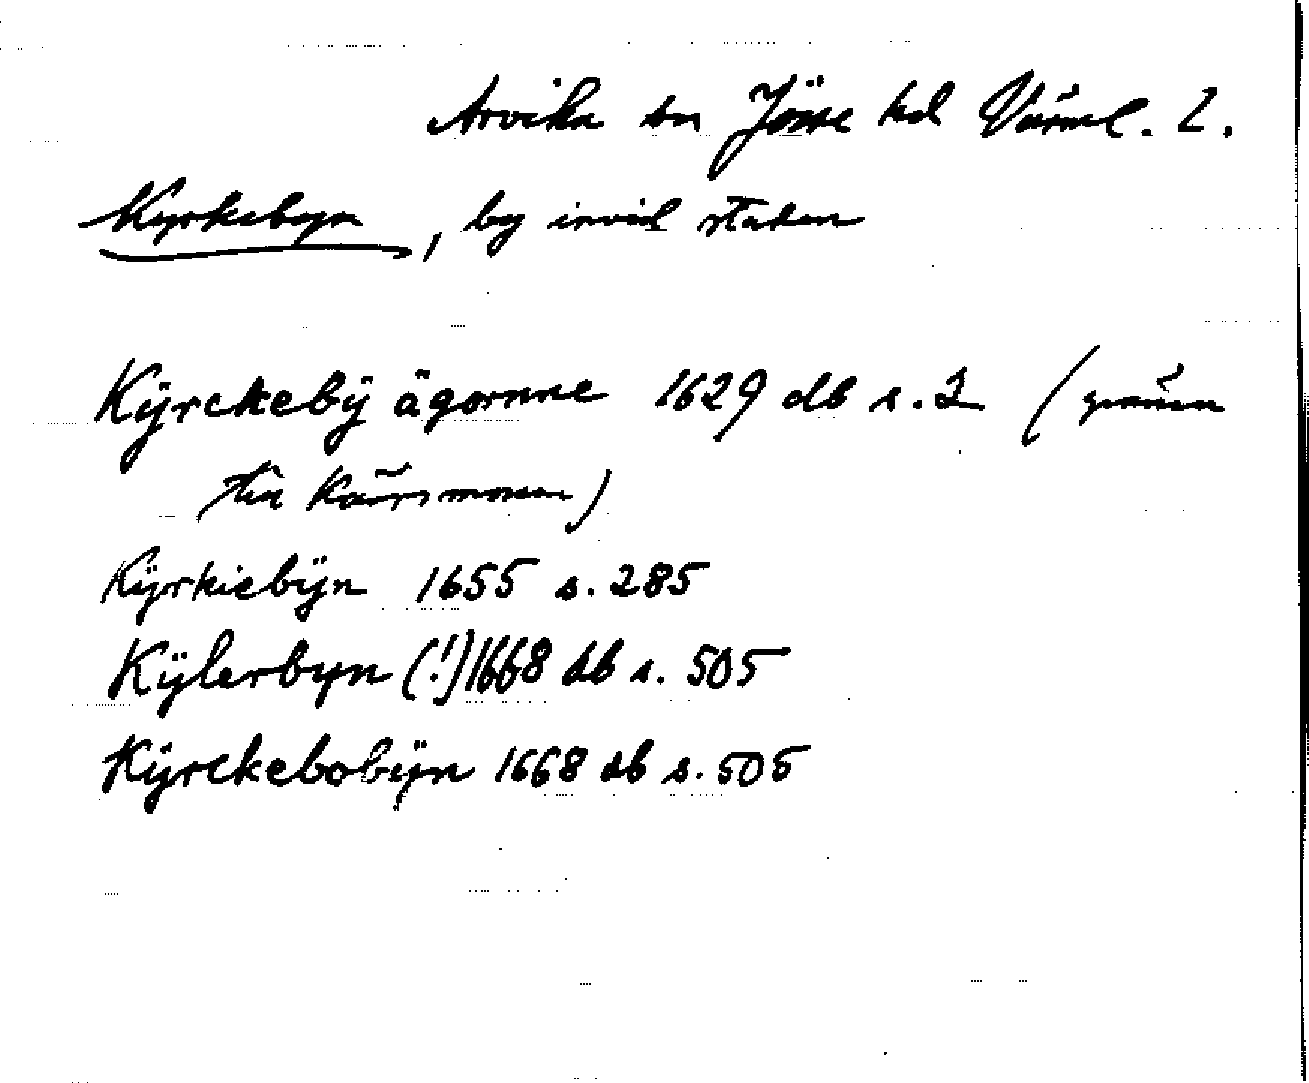 Arvika sn Jösse hd Värml. l.
Kyrkebyn, by invid staden
Kÿrckebÿ ägornne 1629 db s. 2 (gränsen
till Kärrsmon)
Kÿrkiebÿn 1655 s. 285
Kÿlerbyn (!) 1668 db s. 505
Kÿrckebobÿn 1668 db s. 505